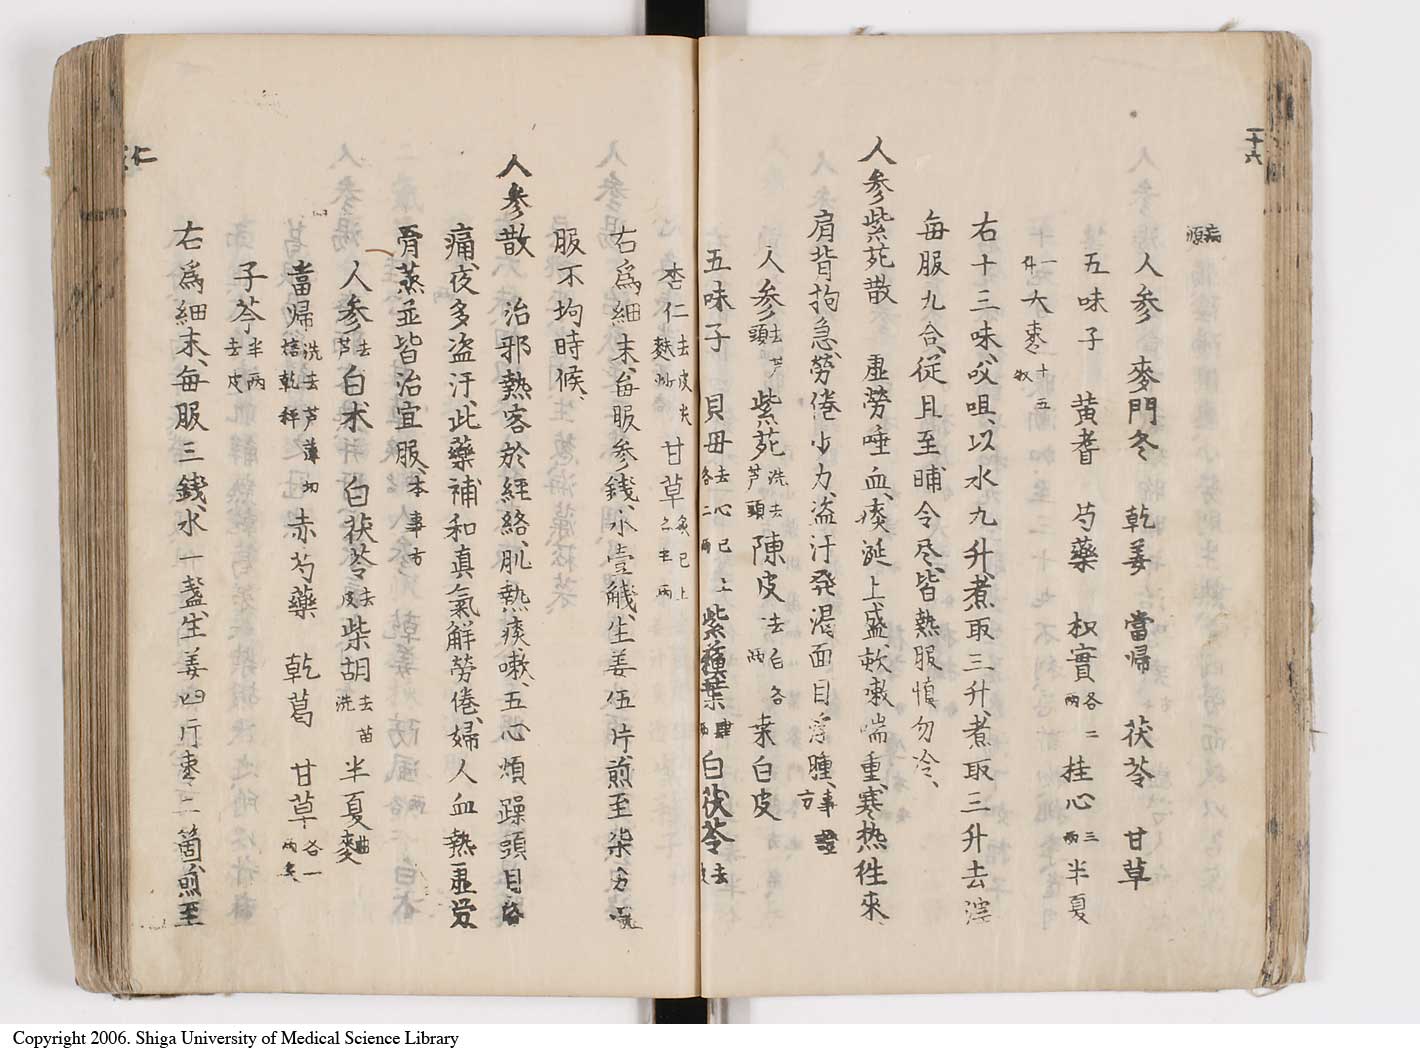 一十六
病源
人参 麥門冬 乾姜 當帰 茯苓 甘草
五味子 黄耆 芍藥 枳實各二兩 桂心三兩 半夏
一升 大枣十五枚
右十三味㕮咀以水九升煮取三升煮取三升去滓
毎服九合従旦至晡令尽皆熱服慎勿冷
人参紫菀散 虚労唾血痰涎上盛欬嗽喘重寒热徃來
肩背拘急勞倦少力盗汗発渇面目浮腫事證方
人参去芦頭 紫菀洗去芦頭 陳皮去白各兩 桒白皮
五味子 貝母去心已上各二兩 紫蘓葉肆兩 白茯苓去皮
杏仁去皮尖麩炒 甘草炙已上
右為細末毎服参錢水壹盞生姜伍片煎至柒分
服不拘時候
人参散 治邪熱客於経絡肌熱痰嗽五心煩躁頭目昏
痛夜多盗汗此藥補和真氣解勞倦婦人血熱虚労
骨蒸並皆治宜服本事方
人参去芦 白朮 白茯苓去皮 柴胡去苗洗 半夏麯
當帰洗去芦薄切焙乾秤 赤芍藥 乾葛 甘草各一兩炙
子芩半兩去皮
右為細末毎服三錢水一盞生姜四片枣二箇煎至
仁